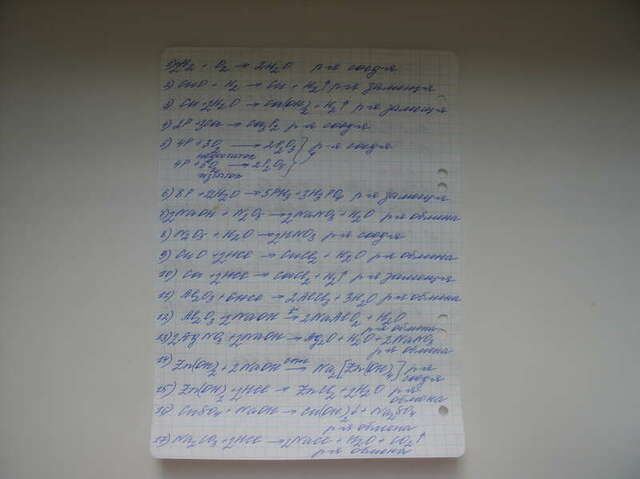 1) 2H₂ + O₂ → 2H₂O р-я соед-я
2) CuO + H₂ → Cu + H₂↑ р-я замещ-я
3) Ca + 2H₂O → Ca(OH)₂ + H₂↑ р-я замещ-я
4) 2P + 3Ca → Ca₃P₂ р-я соед-я
5) 4P + 3O₂ → 2P₂O₃ } р-я соед-я
недостаток
4P + 5O₂ → 2P₂O₅
избыток
6) 8P + 12H₂O → 5PH₃ + 3H₃PO₄ р-я замещ-я
7) 2NaOH + N₂O₅ → 2NaNO₃ + H₂O р-я обмена
8) N₂O₅ + H₂O → 2HNO₃ р-я соед-я
9) CuO + 2HCl → CuCl₂ + H₂O р-я обмена
10) Ca + 2HCl → CaCl₂ + H₂↑ р-я замещ-я
11) Al₂O₃ + 6HCl → 2AlCl₃ + 3H₂O р-я обмена
12) Al₂O₃ + 2NaOH → 2NaAlO₂ + H₂O
р-я обмена
13) 2AgNO₃ + 2NaOH → Ag₂O + H₂O + 2NaNO₃
р-я обмена
14) Zn(OH)₂ + 2NaOH → Na₂[Zn(OH)₄] р-я
соед-я
15) Zn(OH)₂ + 2HCl → ZnCl₂ + 2H₂O р-я
обмена
16) CuSO₄ + NaOH → Cu(OH)₂↓ + Na₂SO₄
р-я обмена
17) Na₂CO₃ + 2HCl → 2NaCl + H₂O + CO₂↑
р-я обмена